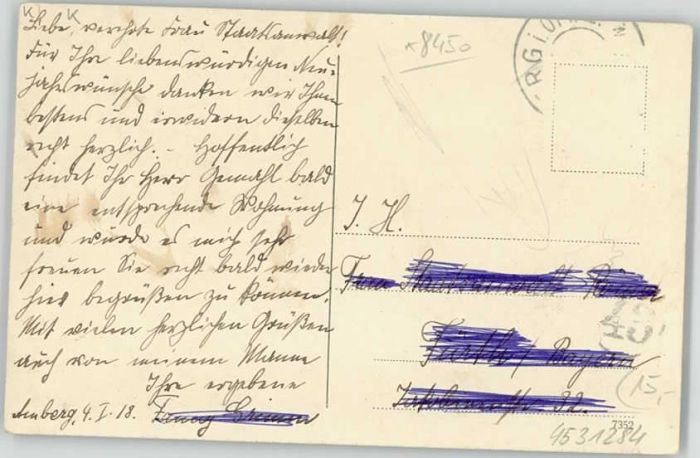 Liebe, verehrte Frau Staatsanwalt!
Für Ihre liebenswürdigen Neu-
jahrswünsche danken wir Ihnen
bestens und erwidern dieselben
recht herzlich. - Hoffentlich
findet Ihr Herr Gemahl bald
eine entsprechende Wohnung
und würde es mich sehr
freuen Sie recht bald wieder
hier begrüßen zu können.
Mit vielen herzlichen Grüßen
auch von meinem Manne
Ihre ergebene
Amberg, 4. I. 18.
*8450
I. H.
Frau
Fürth Bayern
15,-
7352
4531284